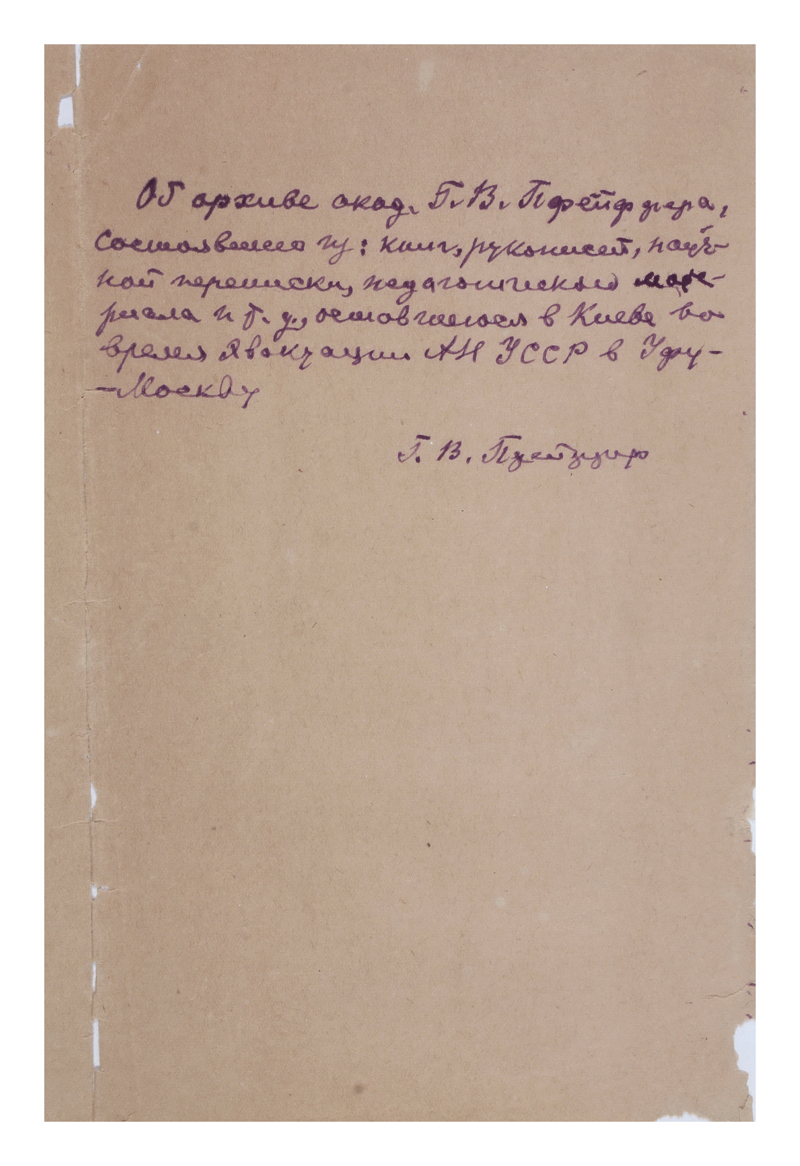 Об архиве акад. Г. В. Пфейффера,
состоявшего из: книг, рукописей, науч-
ной переписки, педагогического мате-
риала и т. д., оставшегося в Киеве во
время эвакуации АН УССР в Уфу-
-Москву
Г. В. Пфейффер